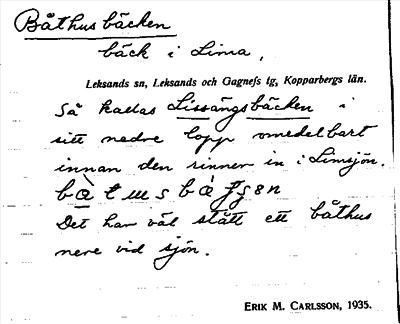 Båthusbäcken
bäck i Lima,
Leksands sn, Leksands och Gagnefs tg, Kopparbergs län.
Så kallas Lissängsbäcken i
sitt nedre lopp omedelbart
innan den rinner in i Limsjön.
Det har väl stått ett båthus
nere vid sjön.
ERIK M. CARLSSON, 1935.